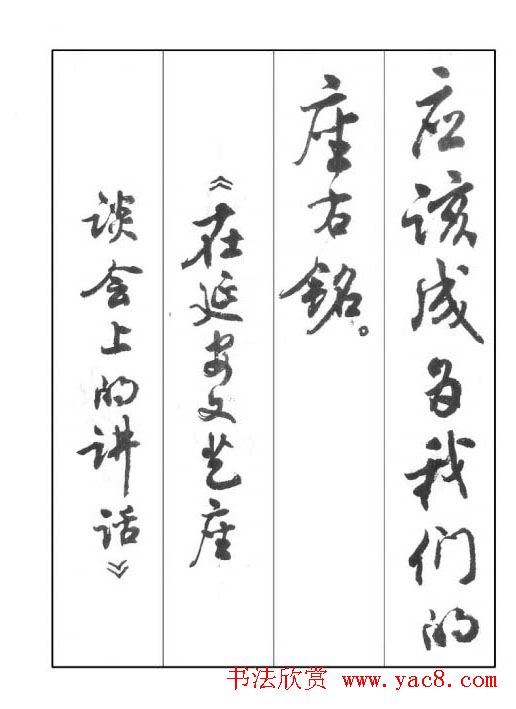 应该成为我们的
座右铭。
《在延安文艺座
谈会上的讲话》
书法欣赏 www.yac8.com